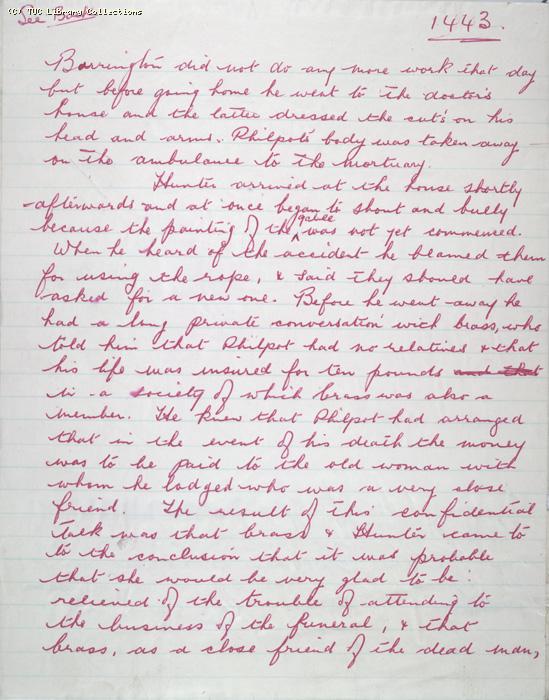 (C) TUC Library Collections
See Back
1443.
Barrington did not do any more work that day
but before going home he went to the doctor's
house and the latter dressed the cuts on his
head and arms. Philpot's body was taken away
on the ambulance to the mortuary.
Hunter arrived at the house shortly
afterwards and at once began to shout and bully
because the painting of the gable was not yet commenced.
When he heard of the accident he blamed them
for using the rope, & said they should have
asked for a new one. Before he went away he
had a long private conversation with brass, who
told him that Philpot had no relatives & that
his life was insured for ten pounds and that
in a society of which brass was also a
member. He knew that Philpot had arranged
that in the event of his death the money
was to be paid to the old woman with
whom he lodged who was a very close
friend. The result of this confidential
talk was that brass & Hunter came to
to the conclusion that it was probable
that she would be very glad to be
relieved of the trouble of attending to
the business of the funeral, & that
brass, as a close friend of the dead man,